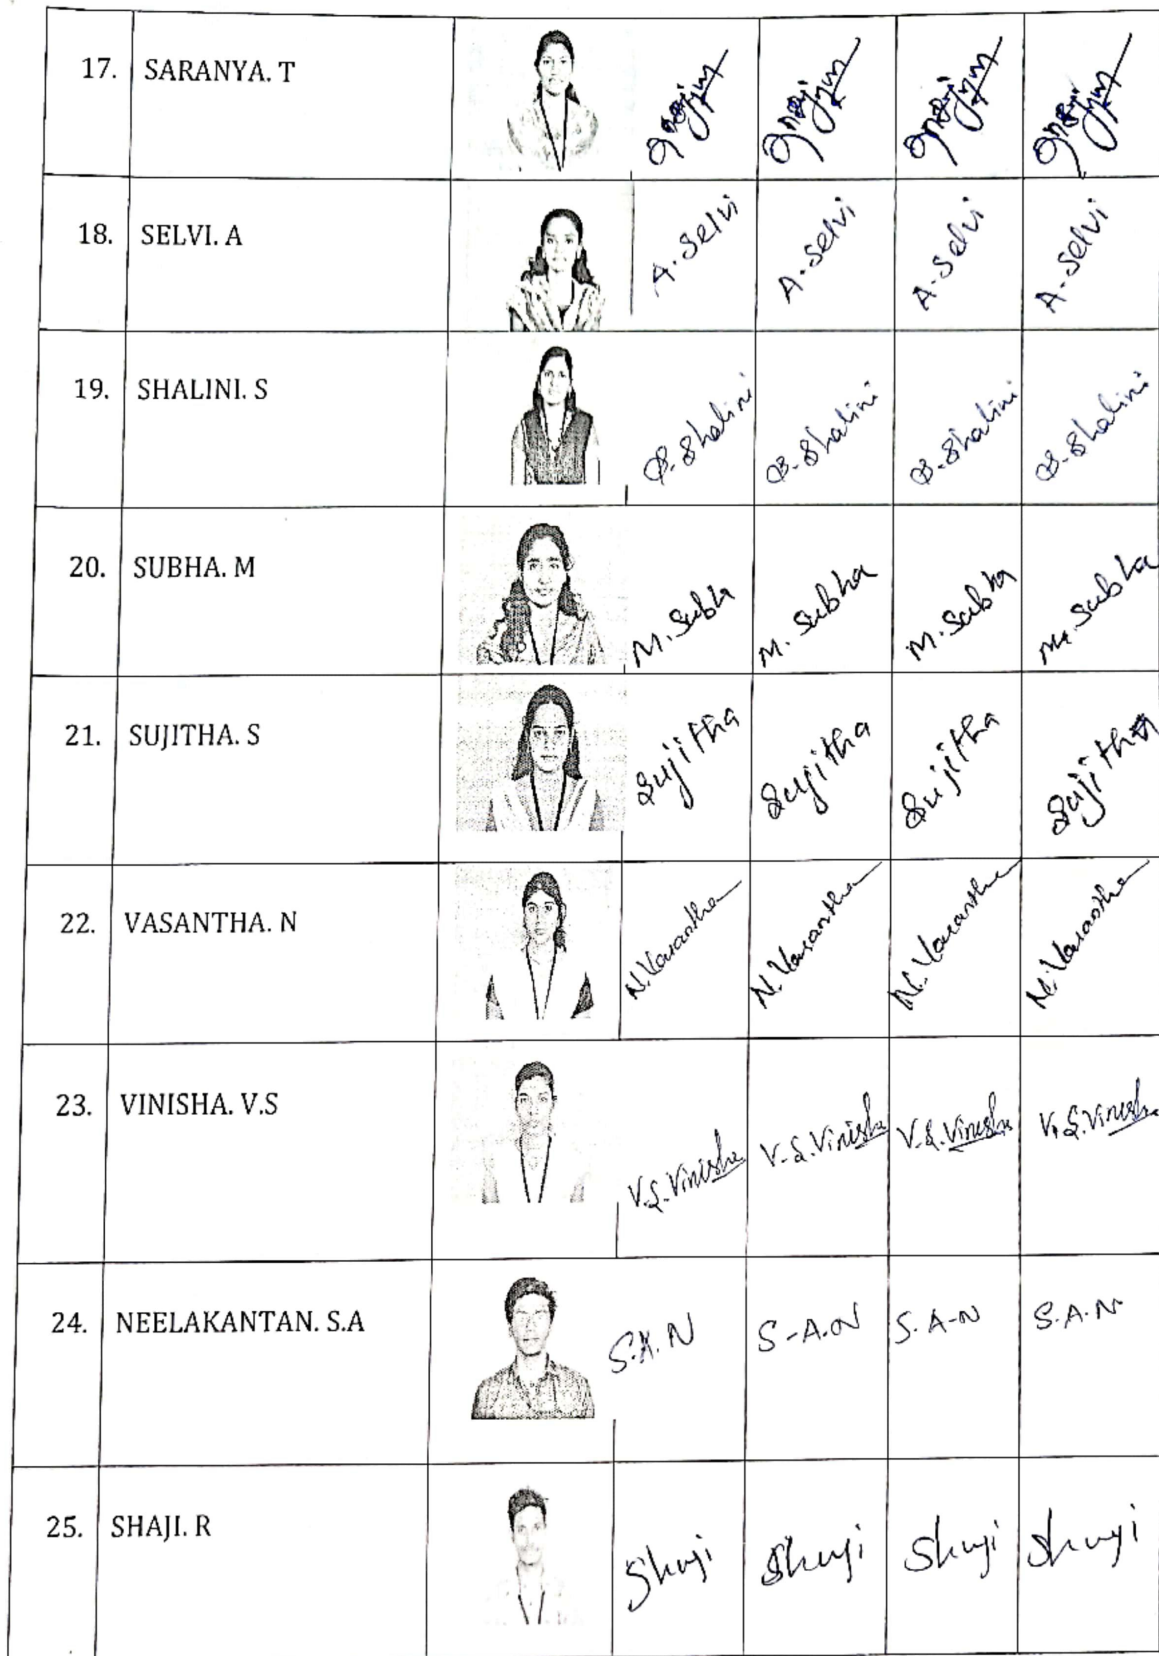 17. SARANYA. T
18. SELVI. A A. Selvi A. Selvi A. Selvi A. Selvi
19. SHALINI. S S. Shalini S. Shalini S. Shalini S. Shalini
20. SUBHA. M M. Subh M. Subha M. Subha M. Subha
21. SUJITHA. S Sujitha Sujitha Sujitha Sujitha
22. VASANTHA. N N. Vasantha N. Vasantha N. Vasantha N. Vasantha
23. VINISHA. V.S V.S. Vinisha V.S. Vinisha V.S. Vinisha V.S. Vinisha
24. NEELAKANTAN. S.A S.A. N S-A. N S. A-N S.A.N
25. SHAJI. R Shaji Shaji Shaji Shaji